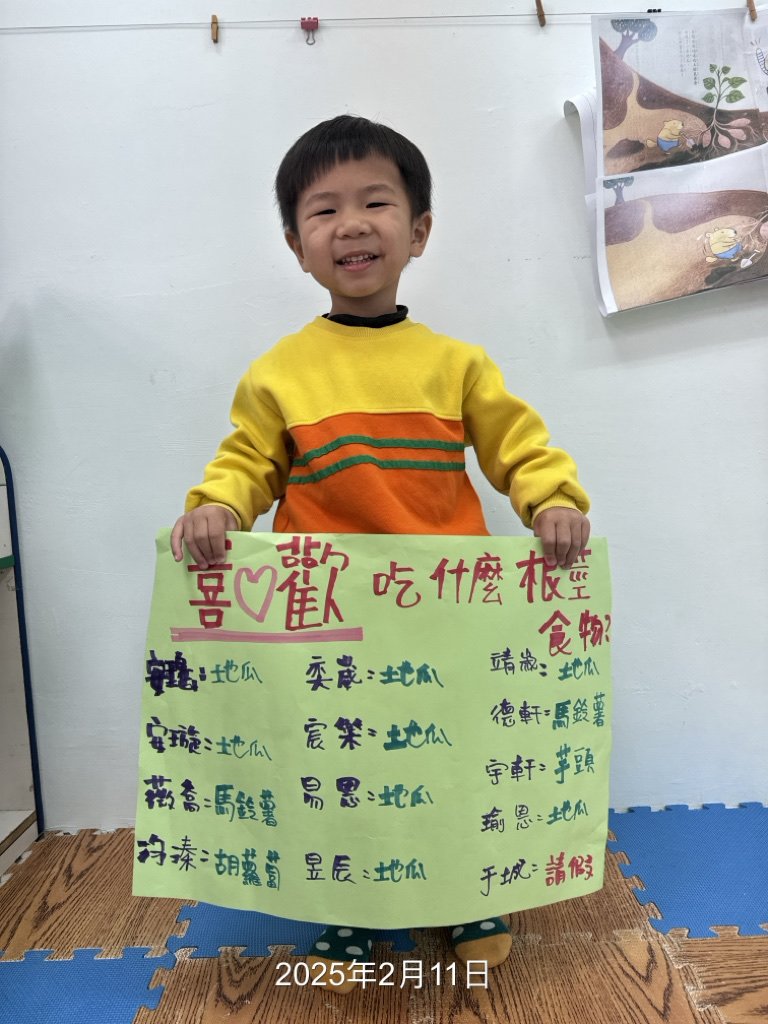 喜歡吃什麼根莖
食物?
安璇:地瓜
薇喬:馬鈴薯
胡蘿蔔
奕葳:地瓜
宸榮:地瓜
易恩:地瓜
昱辰:地瓜
地瓜
德軒:馬鈴薯
宇軒:芋頭
瑜恩:地瓜
請假
2025年2月11日